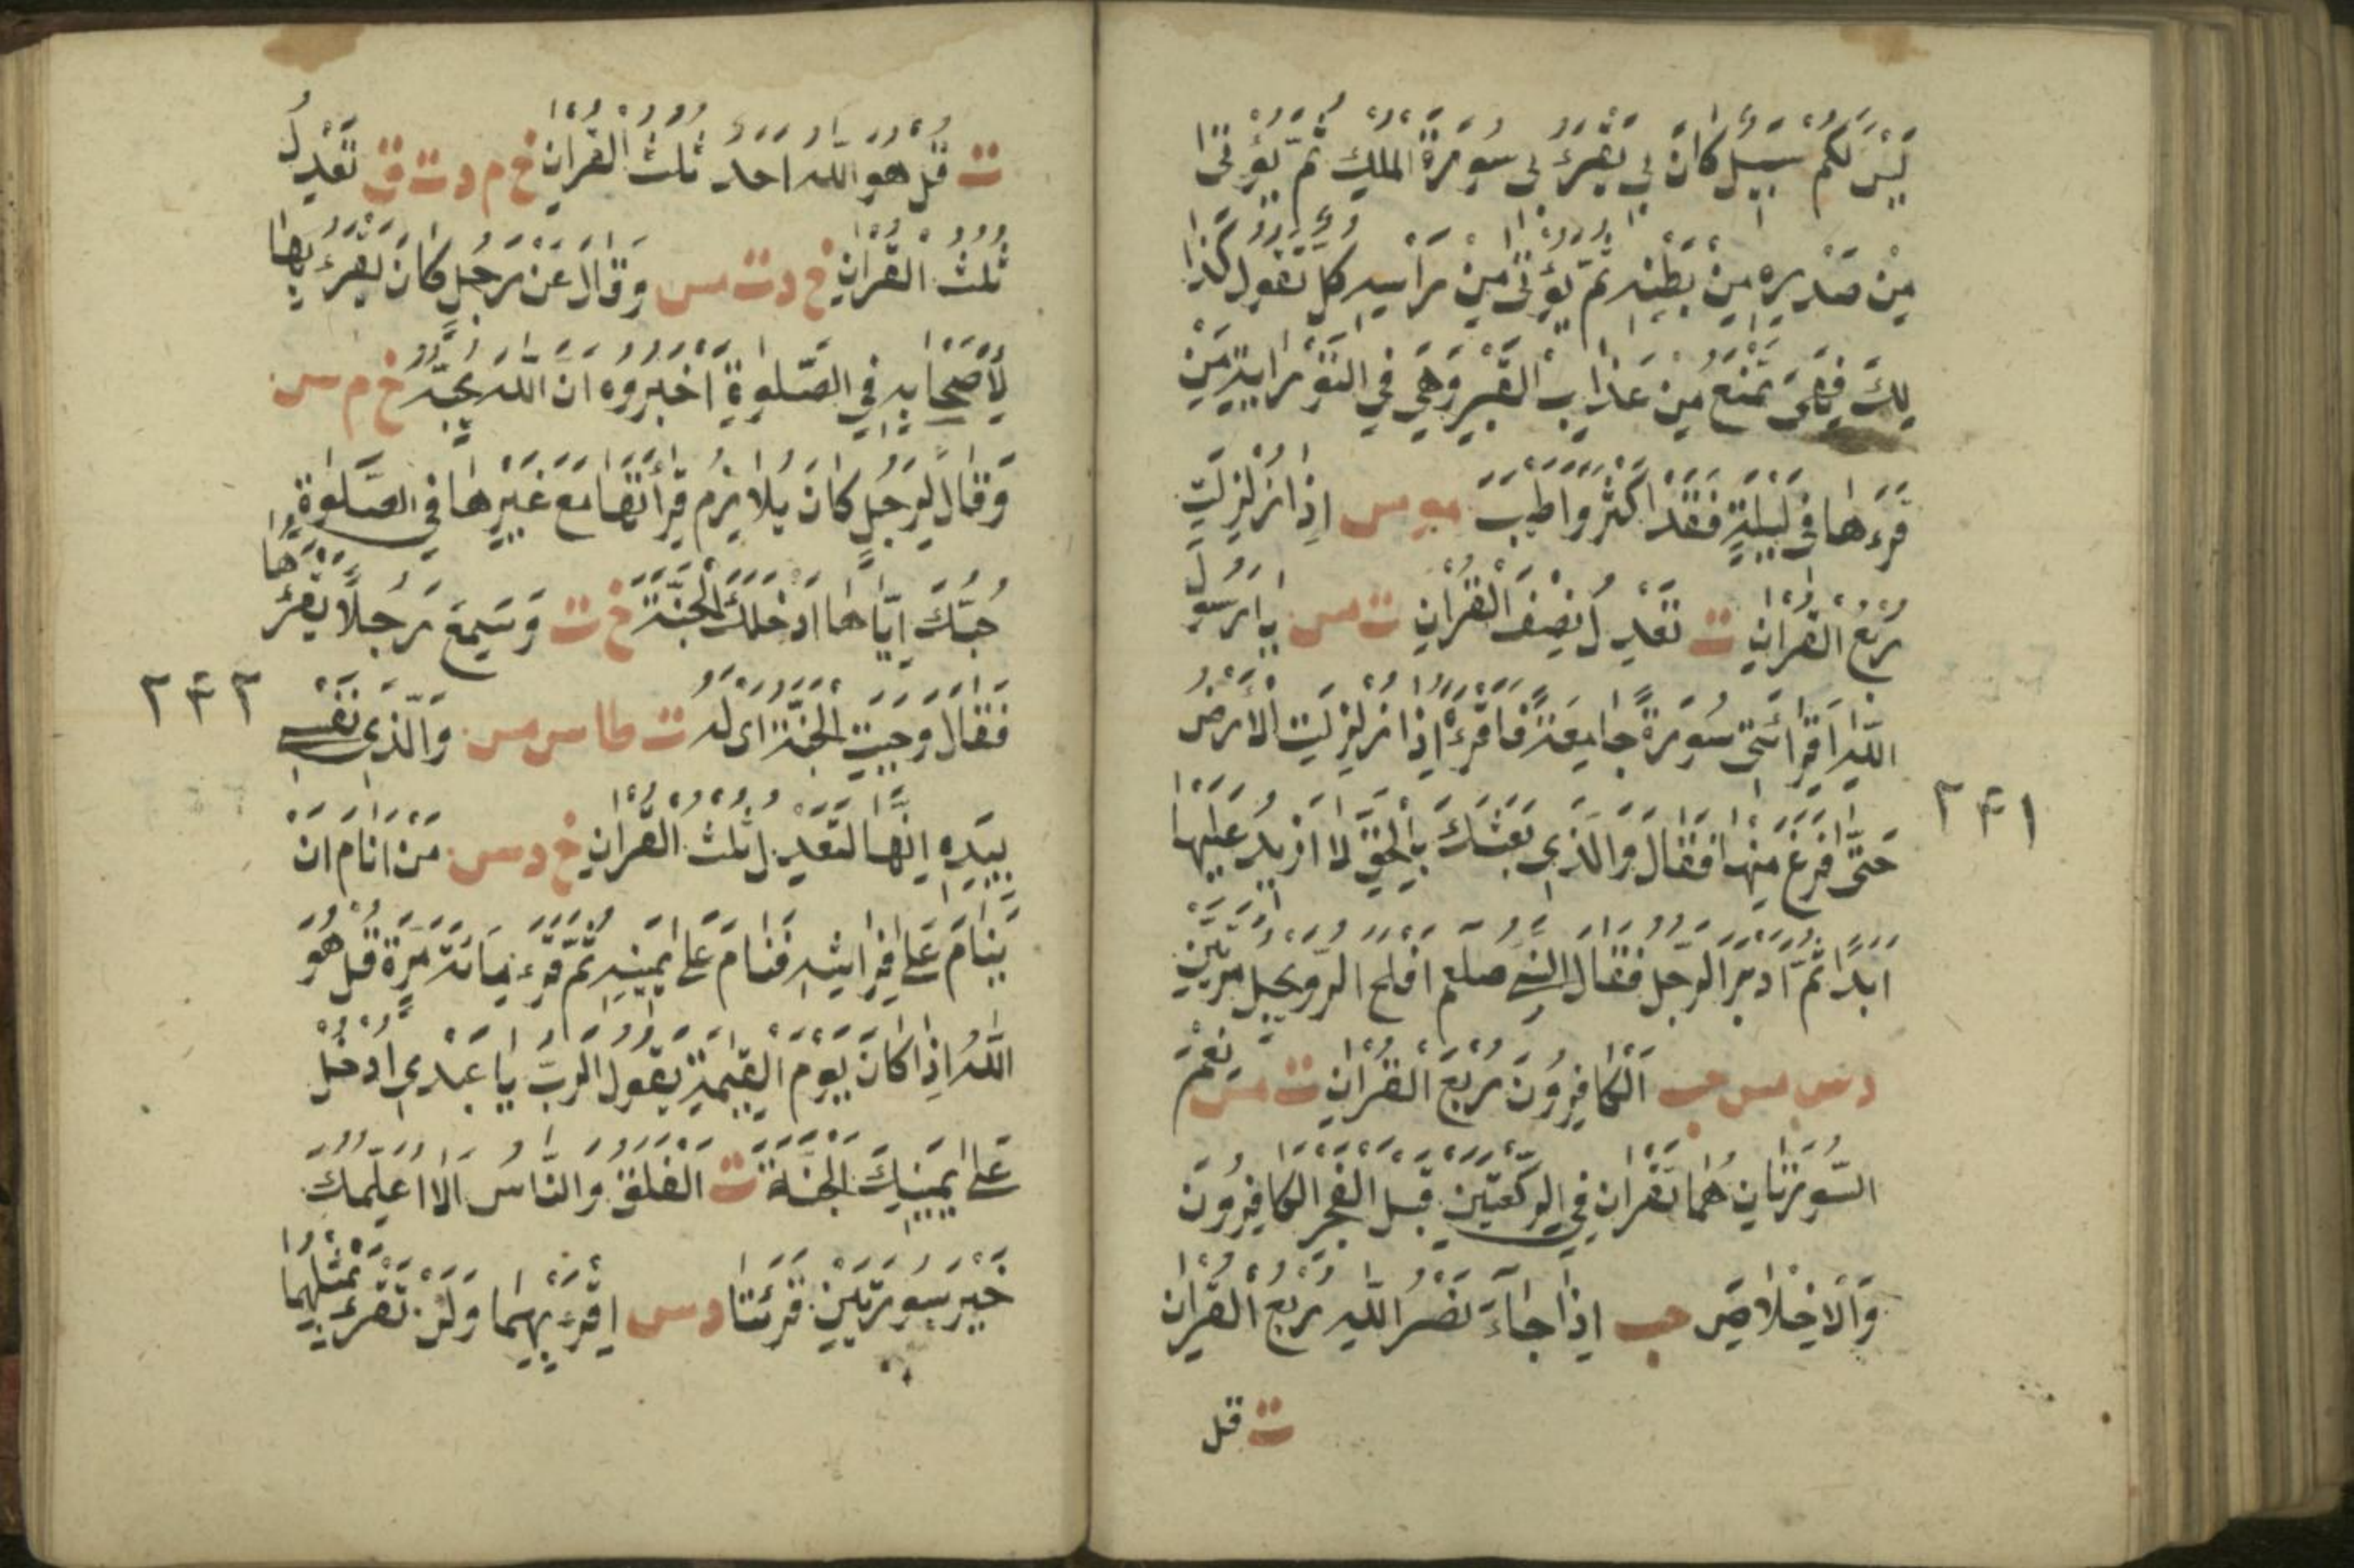 لَيْسَ لَكُمْ سَبِيلٌ كَانَ بِي يَقْرَءُ بِي سُورَةَ الْمُلْكِ ثُمَّ يُؤْتٰى
مِنْ صَدْرِهِ مِنْ بَطْنِهِ ثُمَّ يُؤْتٰى مِنْ رَأْسِهِ كُلٌّ تَقُولُ كَذَا
لِكَ فَهِيَ تَمْنَعُ مِنْ عَذَابِ الْقَبْرِ وَهِيَ فِي التَّوْرَايةِ مَنْ
قَرَءَهَا فِي لَيْلَةٍ فَقَدْ اَكْثَرَ وَاَطْيَبَ مو مس اِذَا زُلْزِلَتِ
رُبْعُ الْقُرْانِ ت تَعْدِلُ نِصْفَ الْقُرْانِ ت مس يَا رَسُولَ
اللّٰهِ اَقْرِائْنِى سُورَةً جَامِعَةً فَاَقْرَءَهُ اِذَا زُلْزِلَتِ الْاَرْضُ
حَتّٰى فَرَغَ مِنْهَا فَقَالَ وَالَّذِي بَعَثَكَ بِالْحَقِّ لَا اَزِيدُ عَلَيْهَا
اَبَدًا ثُمَّ اَدْبَرَ الرَّجُلُ فَقَالَ النَّبِيُّ صلعم اَفْلَحَ الرُّوَيْجِلُ مَرَّتَيْنِ
د س مس حب اَلْكَافِرُونَ رُبْعُ الْقُرْانِ ت مس نِعْمَ
السُّورَتَانِ هُمَا تُقْرَانِ فِي الرَّكْعَتَيْنِ قَبْلَ الْفَجْرِ الْكَافِرُونَ
وَالْاِخْلَاصَِ حب اِذَا جَاءَ نَصْرُ اللّٰهِ رُبْعُ الْقُرْانِ
ت قل
٢٤١
ت قُلْ هُوَ اللّٰهُ اَحَدٌ ثُلُثُ الْقُرْانِ خ م د ت ق تَعْدِلُ
ثُلُثَ الْقُرْانِ خ د ت س وَقَالَ عَنْ رَجُلٍ كَانَ يَقْرَءُ بِهَا
لِاَصْحَابِهِ فِي الصَّلٰوةِ اَخْبِرُوهُ اَنَّ اللّٰهَ يُحِبُّهُ خ م س
وَقَالَ لِرَجُلٍ كَانَ يُلَازِمُ قِرَأَتَهَا مَعَ غَيْرِهَا فِي الصَّلٰوةِ
حُبُّكَ اِيَّاهَا اَدْخَلَكَ الْجَنَّةَ خ ت وَسَمِعَ رَجُلًا يَقْرَؤُهَا
فَقَالَ وَجَبَتِ الْجَنَّةُ اى لَهُ ت طا س مس وَالَّذِي نَفْسِي
بِيَدِهِ اِنَّهَا لَتَعْدِلُ ثُلُثَ الْقُرْانِ خ د س مَنْ اَنَامَ اَنْ
يَنَامَ عَلَى فِرَاشِهِ فَنَامَ عَلَى يَمِينِهِ ثُمَّ قَرَءَ مِائَةَ مَرَّةٍ قُلْ هُوَ
اللّٰهُ اِذَا كَانَ يَوْمُ الْقِيٰمَةِ يَقُولُ الرَّبُّ يَا عَبْدِي اُدْخُلْ
عَلَى يَمِينِكَ الْجَنَّةَ ت اَلْفَلَقُ وَالنَّاسُ اَلَا اُعَلِّمُكَ
خَيْرَ سُورَتَيْنِ قُرِئَتَا د س اِقْرَءْ بِهِمَا وَلَنْ تَقْرَءَ بِمِثْلِهِمَا
٢٤٢